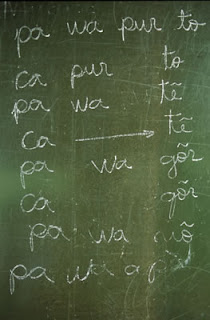 pa wa pur to
to
ca pur
tẽ
pa wa
tẽ
ca → 
gõr
pa wa
gõr
ca
pa wa
pa